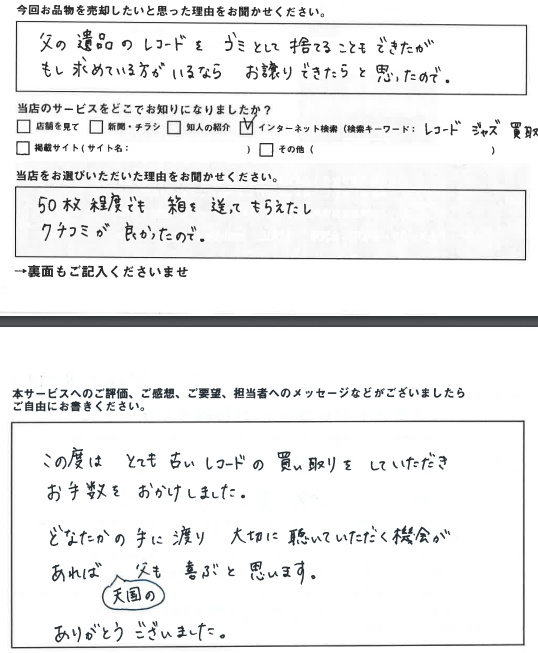 今回お品物を売却したいと思った理由をお聞かせください。
父の遺品のレコードをゴミとして捨てることもできたが
もし求めている方がいるならお譲りできたらと思ったので。
当店のサービスをどこでお知りになりましたか？
□ 店舗を見て □ 新聞・チラシ □ 知人の紹介 ☑ インターネット検索（検索キーワード： レコード ジャズ 買取
□ 掲載サイト（サイト名： ） □ その他（ ）
当店をお選びいただいた理由をお聞かせください。
50枚程度でも箱を送ってもらえたし
クチコミが良かったので。
→裏面もご記入くださいませ
本サービスへのご評価、ご感想、ご要望、担当者へのメッセージなどがございましたら
ご自由にお書きください。
この度はとても古いレコードの買い取りをしていただき
お手数をおかけしました。
どなたかの手に渡り大切に聴いていただく機会が
あれば天国の父も喜ぶと思います。
ありがとうございました。